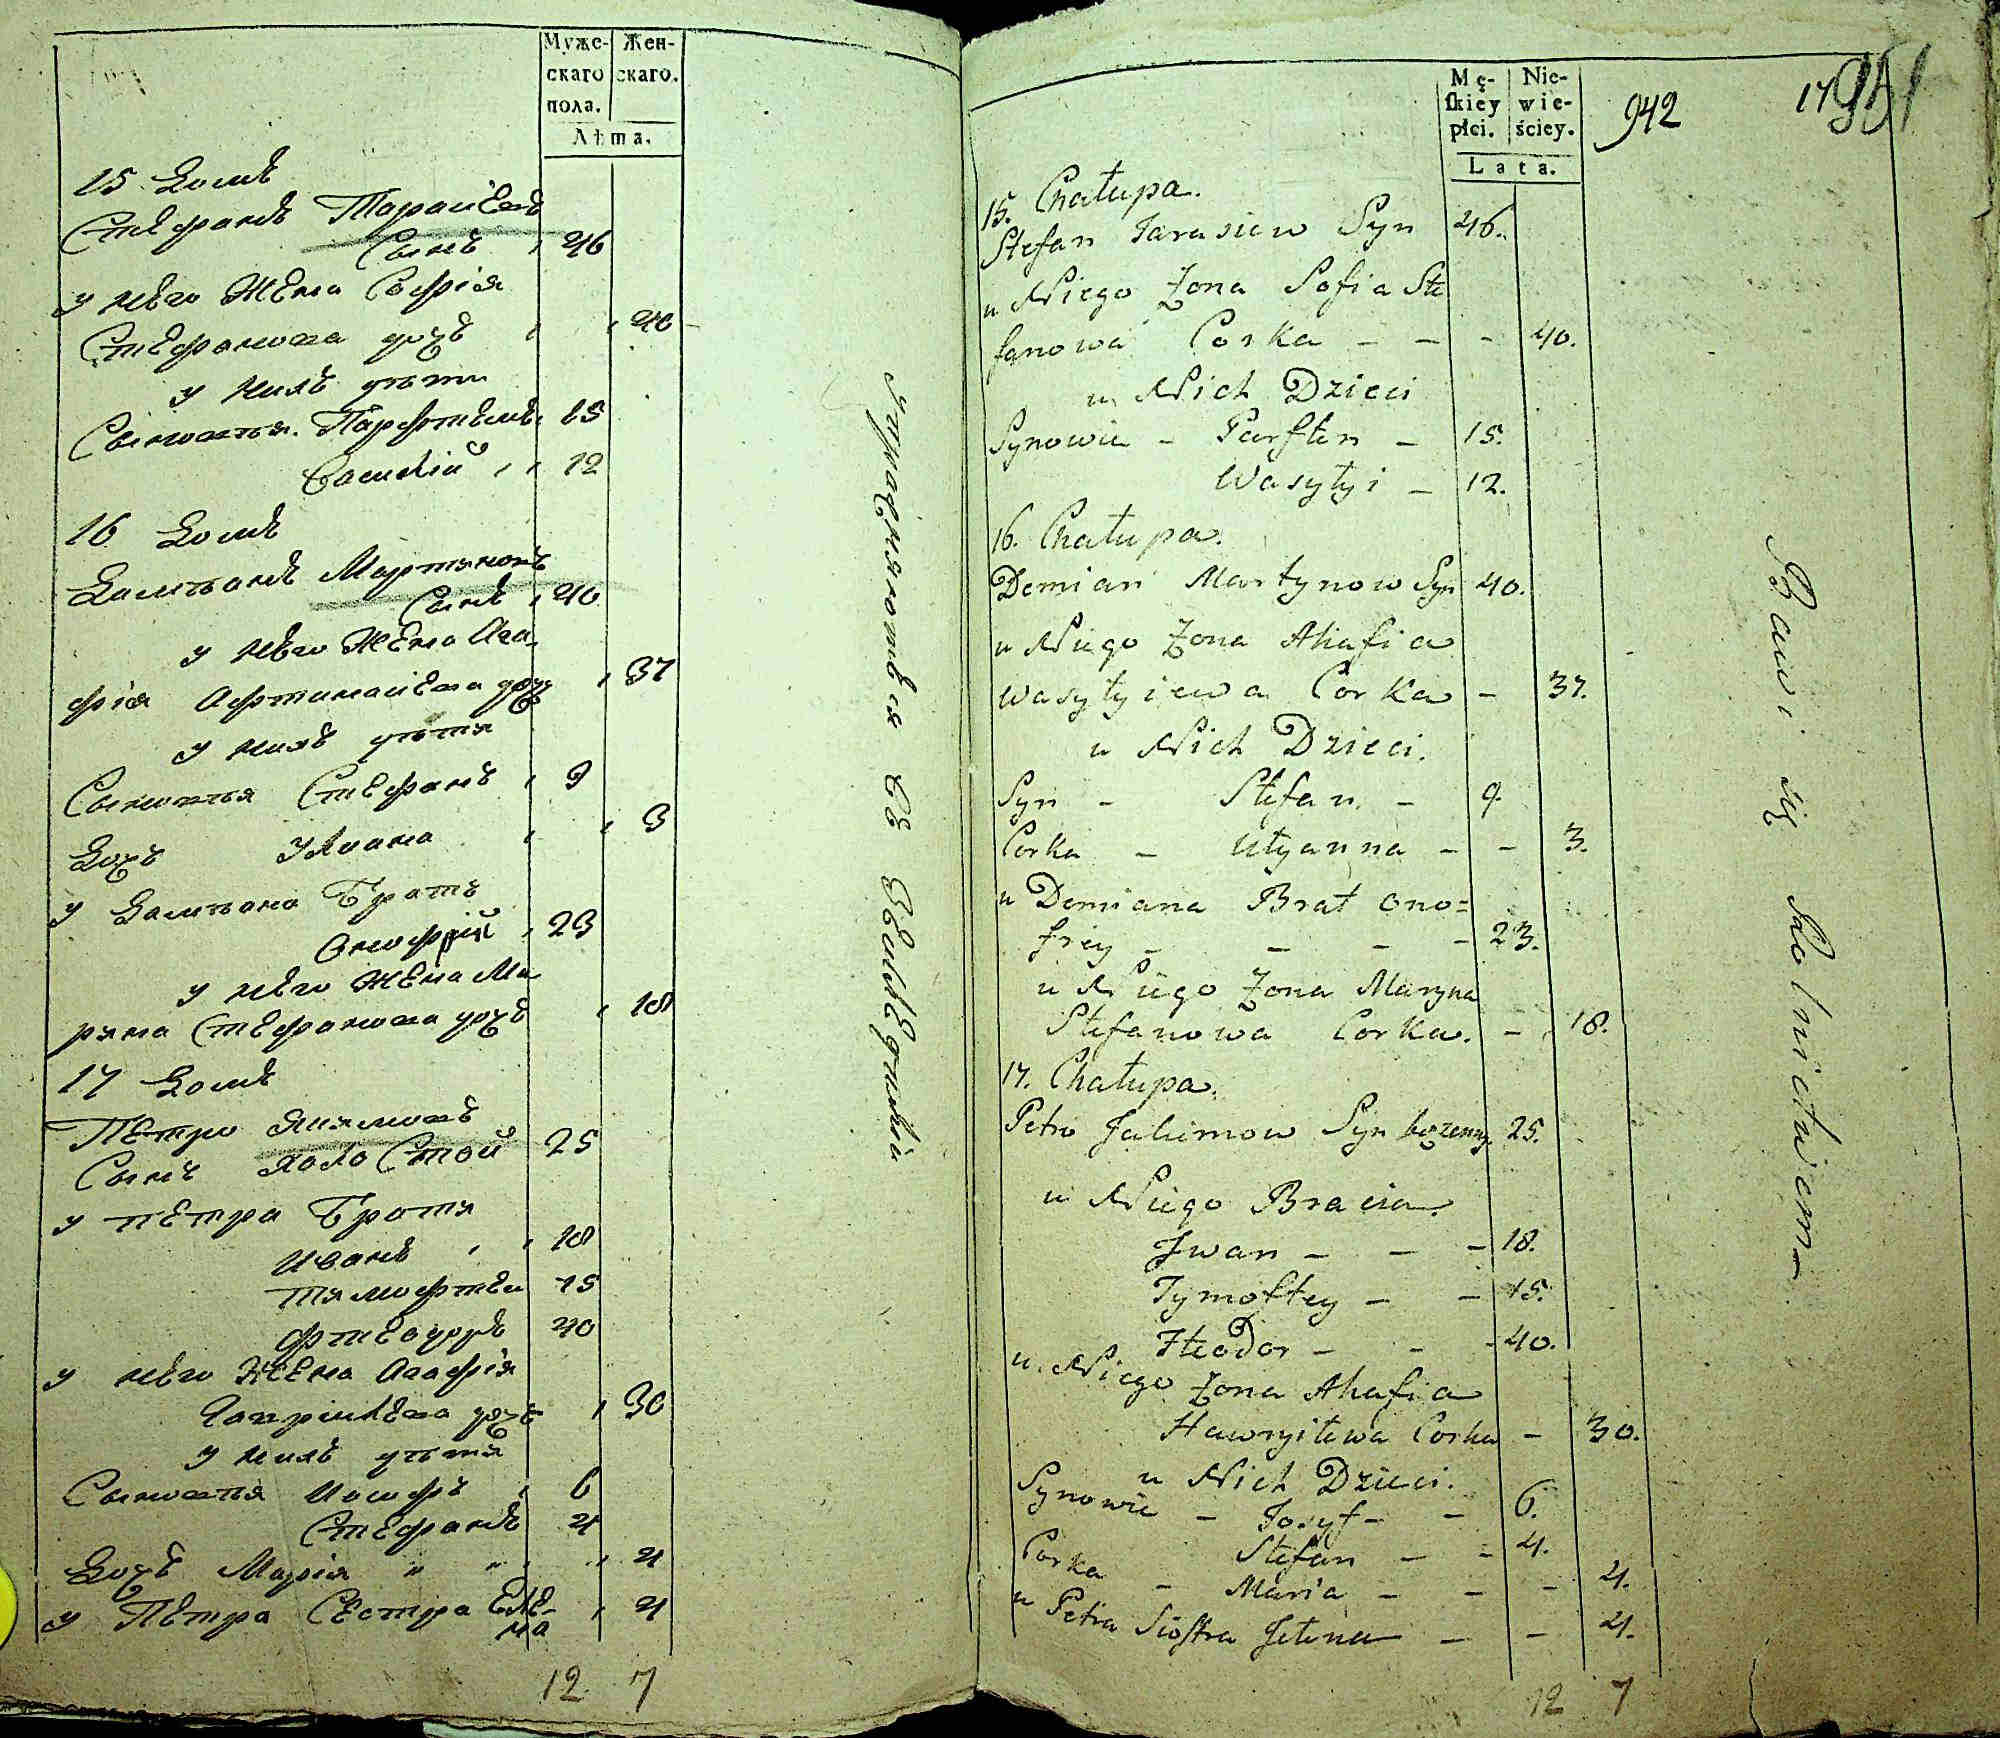 Муже-
скаго
пола.
Жен-
скаго.
Лѣта.
15 Домъ
Стефанъ Тарасіевъ
Сынъ 46
у него Жена Софія
Стефанова дочь 40
у нихъ дѣти
Сыновья. Парфтенъ. 15
Василій 12
16 Домъ
Дамѣанъ Мартыновъ
Сынъ 40
у него Жена Ага-
фія дочь 37
у нихъ дѣти
Сыновья Стефанъ 9
Дочь Уляана 3
у Дамѣана Братъ
Онофрій 23
у него Жена Ма
рына Стефанова дочь 18
17 Домъ
Петро Якимовъ
Сынъ холостой 25
у Петра Братя
Иванъ 18
Тимофтей 15
Фтеодоръ 40
у него Жена Агафія
Гаврилева дочь 30
у нихъ дѣти
Сыновья Иосифъ 6
Стефанъ 4
Дочь Марія 4
у Петра Сестра Еле-
на 4
12 7
упражняются въ Земледѣліи
Mę-
skiey
płci.
Nie-
wie-
ściey.
Lata.
942
15. Chałupa.
Stefan Tarasiew Syn 46.
u Niego Żona Sofia Ste
fanowa Corka - - - 40.
u Nich Dzieci
Synowie - Parften - 15.
Wasyłyi - 12.
16. Chałupa.
Demian Martynow Syn 40.
u Niego Żona Ahafia
Wasyłyiewa Corka - 37.
u Nich Dzieci.
Syn - Stefan - 9.
Corka - Ułyanna - - 3.
u Demiana Brat Ono=
frey - - - - 23.
u Niego Żona Maryna
Stefanowa Corka. - 18.
17. Chałupa.
Petro Jakimow Syn bezenny 25.
u Niego Bracia.
Jwan - - - 18.
Tymoftey - - 15.
Fteodor - - - 40.
u Niego Żona Ahafia
Hawryiłewa Corka - 30.
u Nich Dzieci.
Synowie - Josyf - - 6.
Stefan - - 4.
Corka - Maria - - - 4.
u Petra Siostra Jelena - - 4.
12 7
Bawi się Rolnictwem